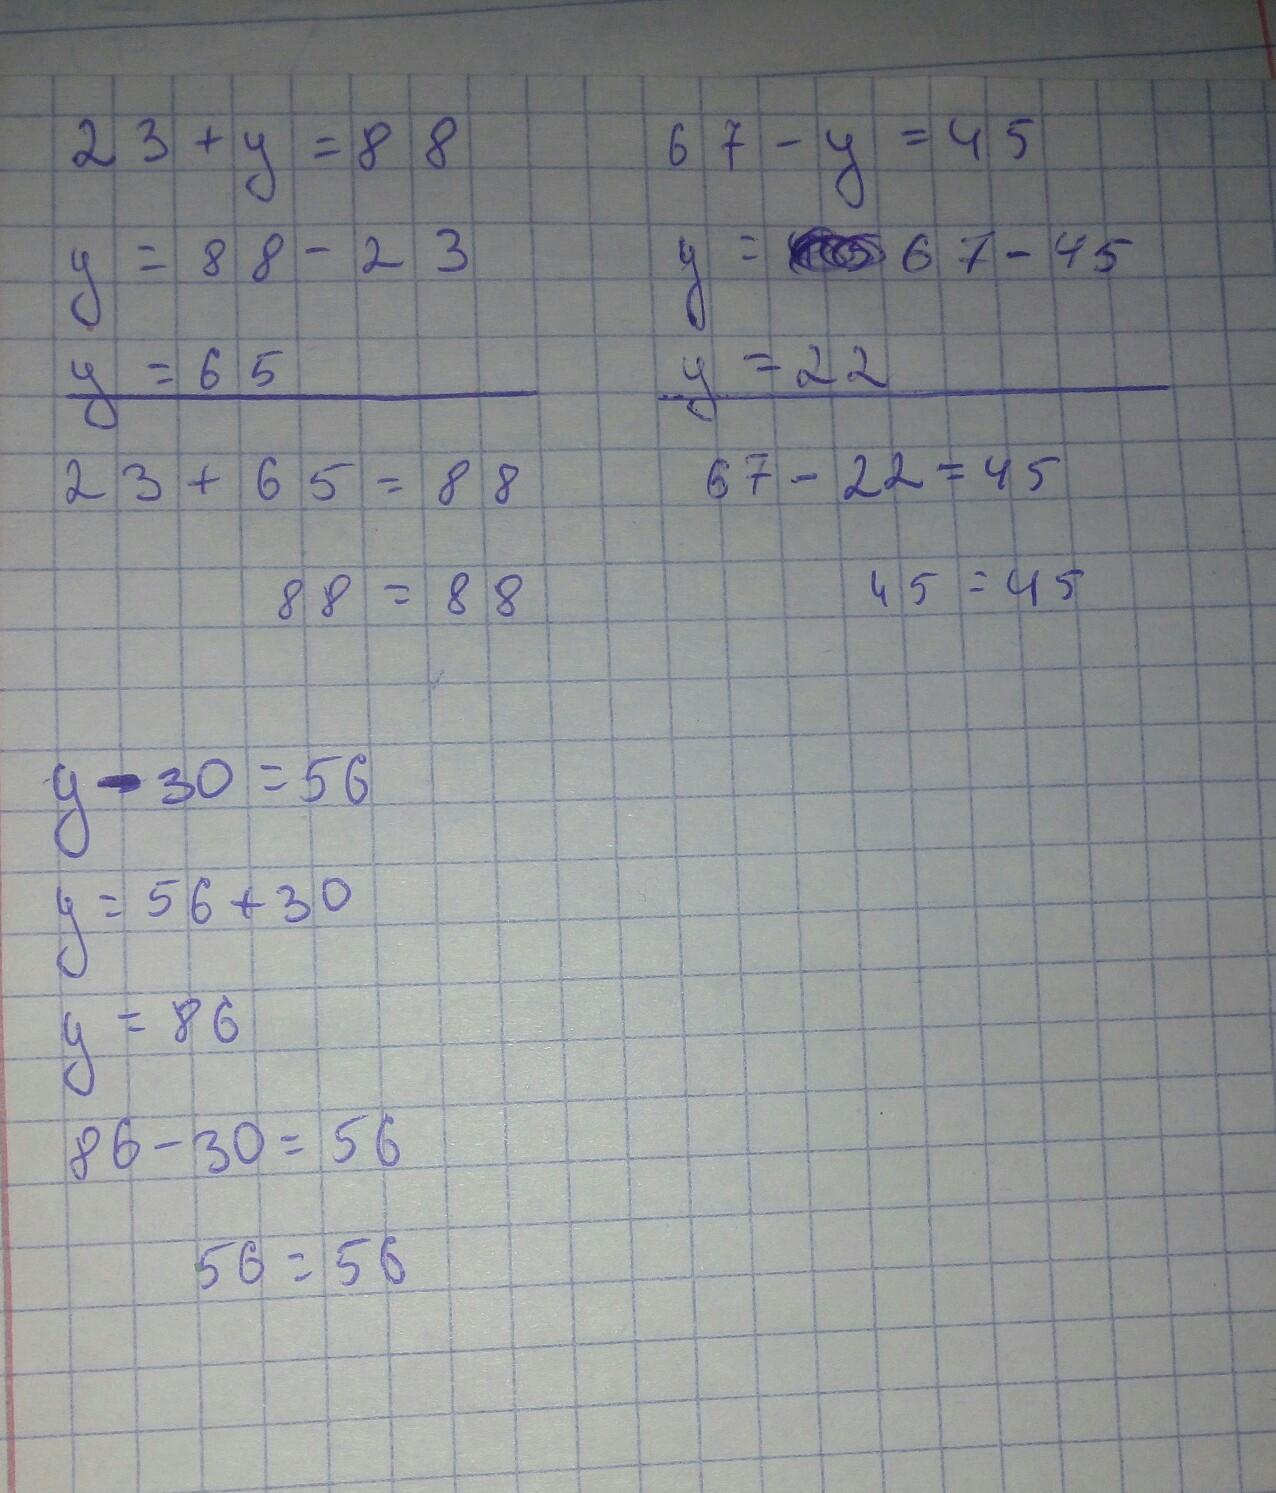 23+y=88
y=88-23
y=65
23+65=88
88=88
67-y=45
y=67-45
y=22
67-22=45
45=45
y-30=56
y=56+30
y=86
86-30=56
56=56